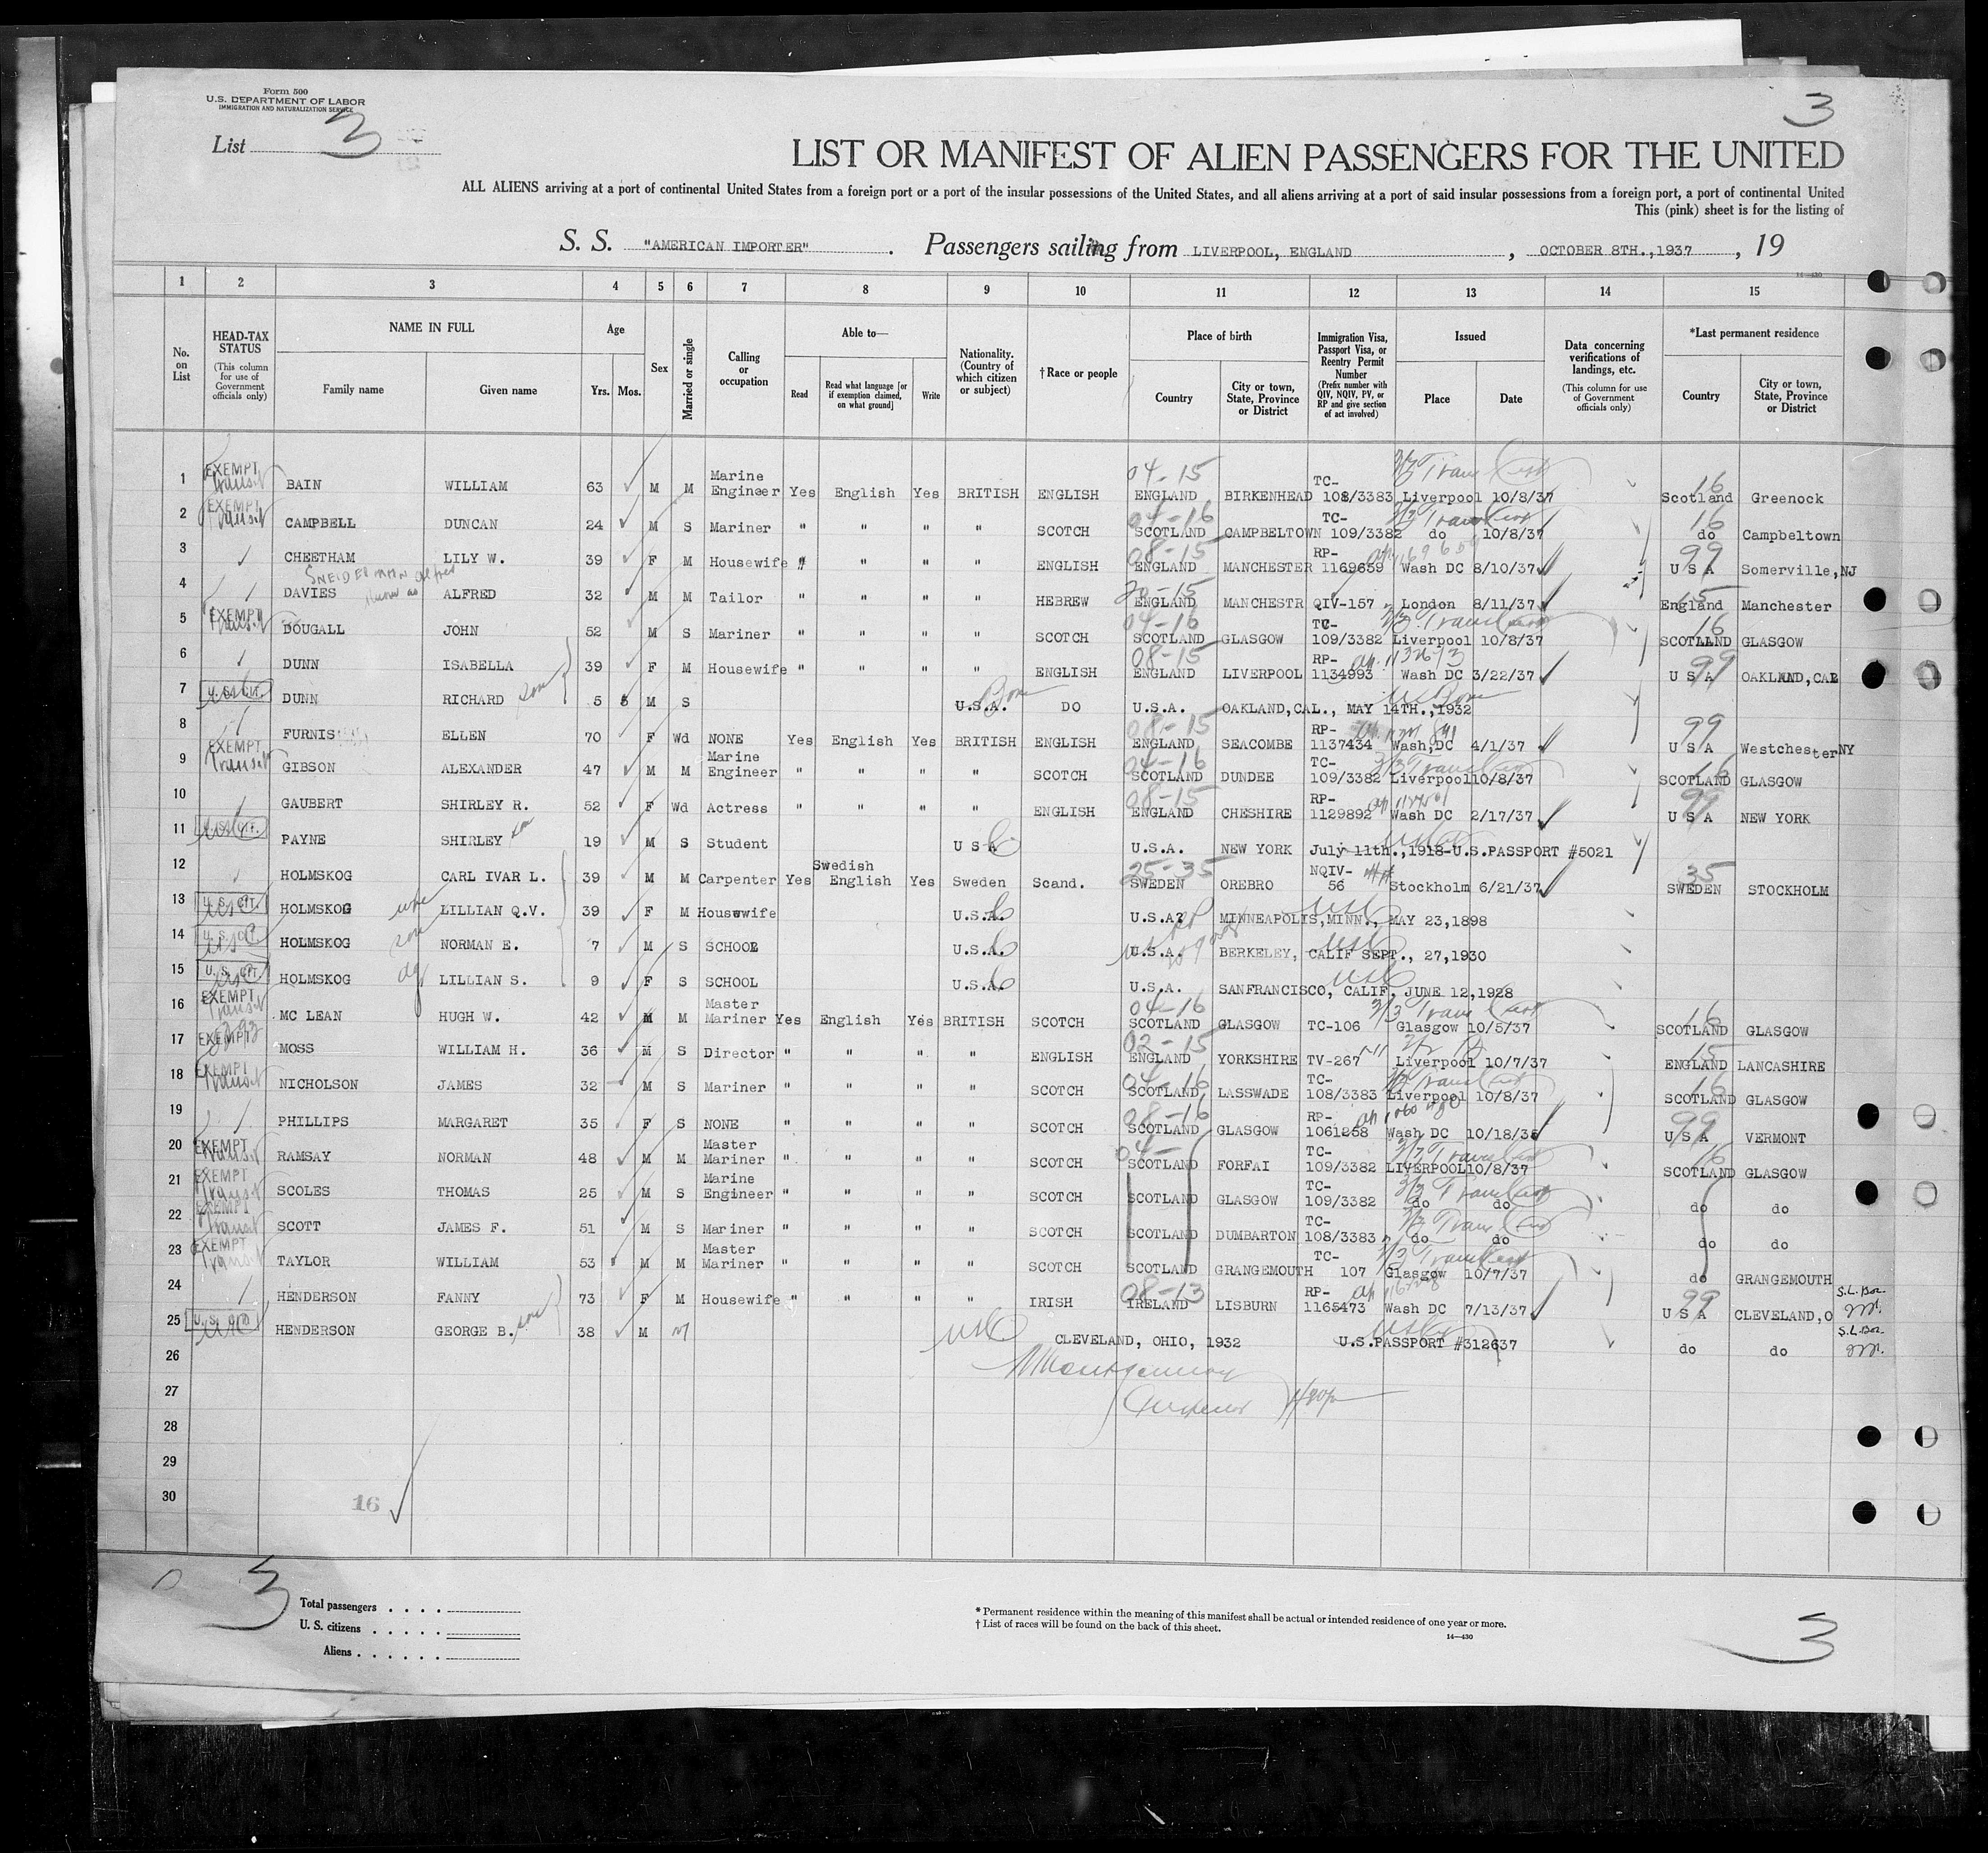 Form 500
U.S. DEPARTMENT OF LABOR
IMMIGRATION AND NATURALIZATION SERVICE
3
List 3
LIST OR MANIFEST OF ALIEN PASSENGERS FOR THE UNITED
ALL ALIENS arriving at a port of continental United States from a foreign port or a port of the insular possessions of the United States, and all aliens arriving at a port of said insular possessions from a foreign port, a port of continental United
This (pink) sheet is for the listing of
S. S. "AMERICAN IMPORTER". Passengers sailing from LIVERPOOL, ENGLAND, OCTOBER 8TH.,1937, 19
14—430
1 2 3 4 5 6 7 8 9 10 11 12 13 14 15
No. on List
HEAD-TAX STATUS (This column for use of Government officials only)
NAME IN FULL Family name Given name
Age Yrs. Mos.
Sex
Married or single
Calling or occupation
Able to— Read Read what language [or if exemption claimed, on what ground] Write
Nationality. (Country of which citizen or subject)
†Race or people
Place of birth Country City or town, State, Province or District
Immigration Visa, Passport Visa, or Reentry Permit Number (Prefix number with QIV, NQIV, PV, or RP and give section of act involved)
Issued Place Date
Data concerning verifications of landings, etc. (This column for use of Government officials only)
*Last permanent residence Country City or town, State, Province or District
1 EXEMPT Transit BAIN WILLIAM 63 M M Marine Engineer Yes English Yes BRITISH ENGLISH 04-15 ENGLAND BIRKENHEAD TC-108/3383 Liverpool 10/8/37 16 Scotland Greenock
2 EXEMPT Transit CAMPBELL DUNCAN 24 M S Mariner " " " " SCOTCH 04-16 SCOTLAND CAMPBELTOWN TC-109/3382 do 10/8/37 16 do Campbeltown
3 CHEETHAM LILY W. 39 F M Housewife " " " " ENGLISH 08-15 ENGLAND MANCHESTER RP-1169659 Wash DC 8/10/37 99 U S A Somerville,NJ
SNEIDERMAN Alfred
4 DAVIES known as ALFRED 32 M M Tailor " " " " HEBREW 20-15 ENGLAND MANCHESTR QIV-157 London 8/11/37 15 England Manchester
5 EXEMPT Transit DOUGALL JOHN 52 M S Mariner " " " " SCOTCH 04-16 SCOTLAND GLASGOW TC-109/3382 Liverpool 10/8/37 16 SCOTLAND GLASGOW
6 DUNN ISABELLA 39 F M Housewife " " " " ENGLISH 08-15 ENGLAND LIVERPOOL RP-1134993 Wash DC 3/22/37 99 U S A OAKLAND,CAL
7 U.S. CIT. DUNN RICHARD son 5 M S U.S.A. Born DO U.S.A. OAKLAND,CAL., MAY 14TH.,1932 US Born
8 FURNIS ELLEN 70 F Wd NONE Yes English Yes BRITISH ENGLISH 08-15 ENGLAND SEACOMBE RP-1137434 Wash,DC 4/1/37 99 U S A Westchester NY
9 EXEMPT Transit GIBSON ALEXANDER 47 M M Marine Engineer " " " " SCOTCH 04-16 SCOTLAND DUNDEE TC-109/3382 Liverpool 10/8/37 16 SCOTLAND GLASGOW
10 GAUBERT SHIRLEY R. 52 F Wd Actress " " " " ENGLISH 08-15 ENGLAND CHESHIRE RP-1129892 Wash DC 2/17/37 99 U S A NEW YORK
11 PAYNE SHIRLEY son 19 M S Student U S A U.S.A. NEW YORK July 11th.,1918-U.S.PASSPORT #5021
12 HOLMSKOG CARL IVAR L. 39 M M Carpenter Yes Swedish English Yes Sweden Scand. 25-35 SWEDEN OREBRO NQIV-56 Stockholm 6/21/37 35 SWEDEN STOCKHOLM
13 U. S. CIT. HOLMSKOG wife LILLIAN Q.V. 39 F M Housewife U.S.A. U.S.A? MINNEAPOLIS,MINN., MAY 23,1898
14 U. S. CIT. HOLMSKOG son NORMAN E. 7 M S SCHOOL U.S.A. U.S.A. BERKELEY, CALIF SEPT., 27,1930
15 U. S. CIT. HOLMSKOG dg LILLIAN S. 9 F S SCHOOL U.S.A. U.S.A. SANFRANCISCO, CALIF, JUNE 12,1928
16 EXEMPT Transit MC LEAN HUGH W. 42 M M Master Mariner Yes English Yes BRITISH SCOTCH 04-16 SCOTLAND GLASGOW TC-106 Glasgow 10/5/37 16 SCOTLAND GLASGOW
17 EXEMPT MOSS WILLIAM H. 36 M S Director " " " " ENGLISH 02-15 ENGLAND YORKSHIRE TV-267 Liverpool 10/7/37 15 ENGLAND LANCASHIRE
18 EXEMPT Transit NICHOLSON JAMES 32 M S Mariner " " " " SCOTCH 04-16 SCOTLAND LASSWADE TC-108/3383 Liverpool 10/8/37 16 SCOTLAND GLASGOW
19 PHILLIPS MARGARET 35 F S NONE " " " " SCOTCH 08-16 SCOTLAND GLASGOW RP-1061258 Wash DC 10/18/35 99 U S A VERMONT
20 EXEMPT Transit RAMSAY NORMAN 48 M M Master Mariner " " " " SCOTCH 04- SCOTLAND FORFAI TC-109/3382 LIVERPOOL 10/8/37 16 SCOTLAND GLASGOW
21 EXEMPT Transit SCOLES THOMAS 25 M S Marine Engineer " " " " SCOTCH SCOTLAND GLASGOW TC-109/3382 do do do do
22 EXEMPT Transit SCOTT JAMES F. 51 M S Mariner " " " " SCOTCH SCOTLAND DUMBARTON TC-108/3383 do do do do
23 EXEMPT Transit TAYLOR WILLIAM 53 M M Master Mariner " " " " SCOTCH SCOTLAND GRANGEMOUTH TC-107 Glasgow 10/7/37 do GRANGEMOUTH
24 HENDERSON FANNY 73 F M Housewife " " " " IRISH 08-13 IRELAND LISBURN RP-1165473 Wash DC 7/13/37 99 U S A CLEVELAND,O
25 U. S. CIT. HENDERSON GEORGE B. son 38 M M USC CLEVELAND, OHIO, 1932 U.S.PASSPORT #312637 do do
26
27
28
29
30
16
3
Total passengers . . . .
U. S. citizens . . . . .
Aliens . . . . . .
* Permanent residence within the meaning of this manifest shall be actual or intended residence of one year or more.
† List of races will be found on the back of this sheet.
14—430
3